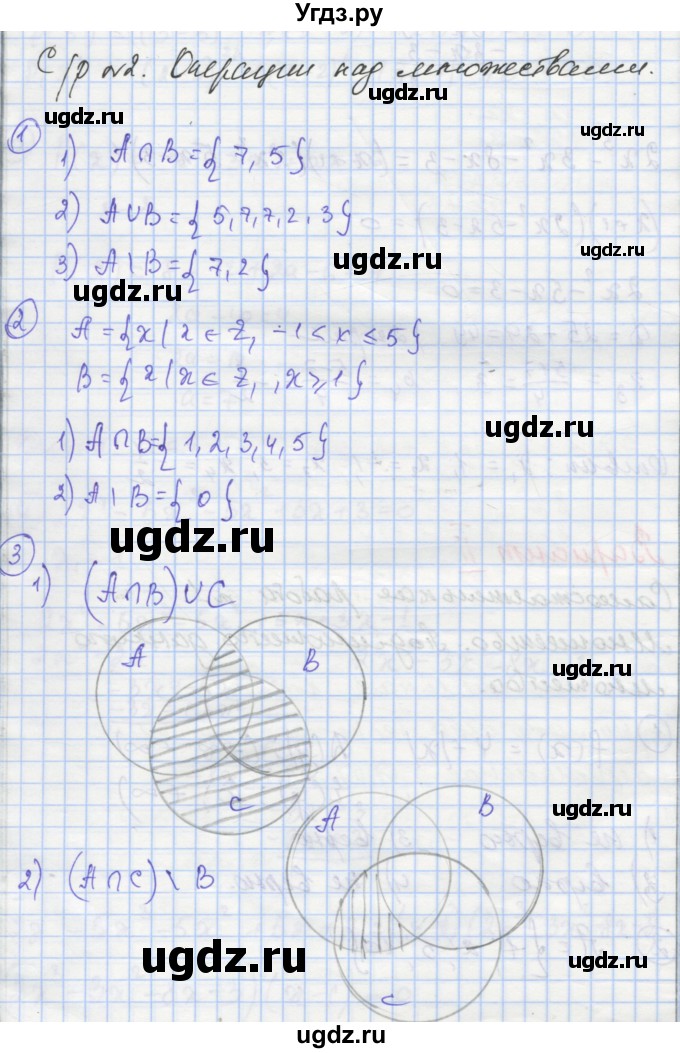 Угдз.ру
С/р №2. Операции над множествами.
ugdz.ru
ugdz.ru
1
1) A∩B={7,5}
ugdz.ru
2) A∪B={5,7,7,2,3}
ugdz.ru
3) A\B={7,2}
ugdz.ru
2
A={x|x∈Z, -1<x≤5}
B={x|x∈Z, ,x≥1}
ugdz.ru
1) A∩B={1,2,3,4,5}
2) A\B={0}
ugdz.ru
ugdz.ru
3
1) (A∩B)∪C
A
B
ugdz.ru
C
A
B
ugdz.ru
2) (A∩C)\B
ugdz.ru
ugdz.ru
C
ugdz.ru